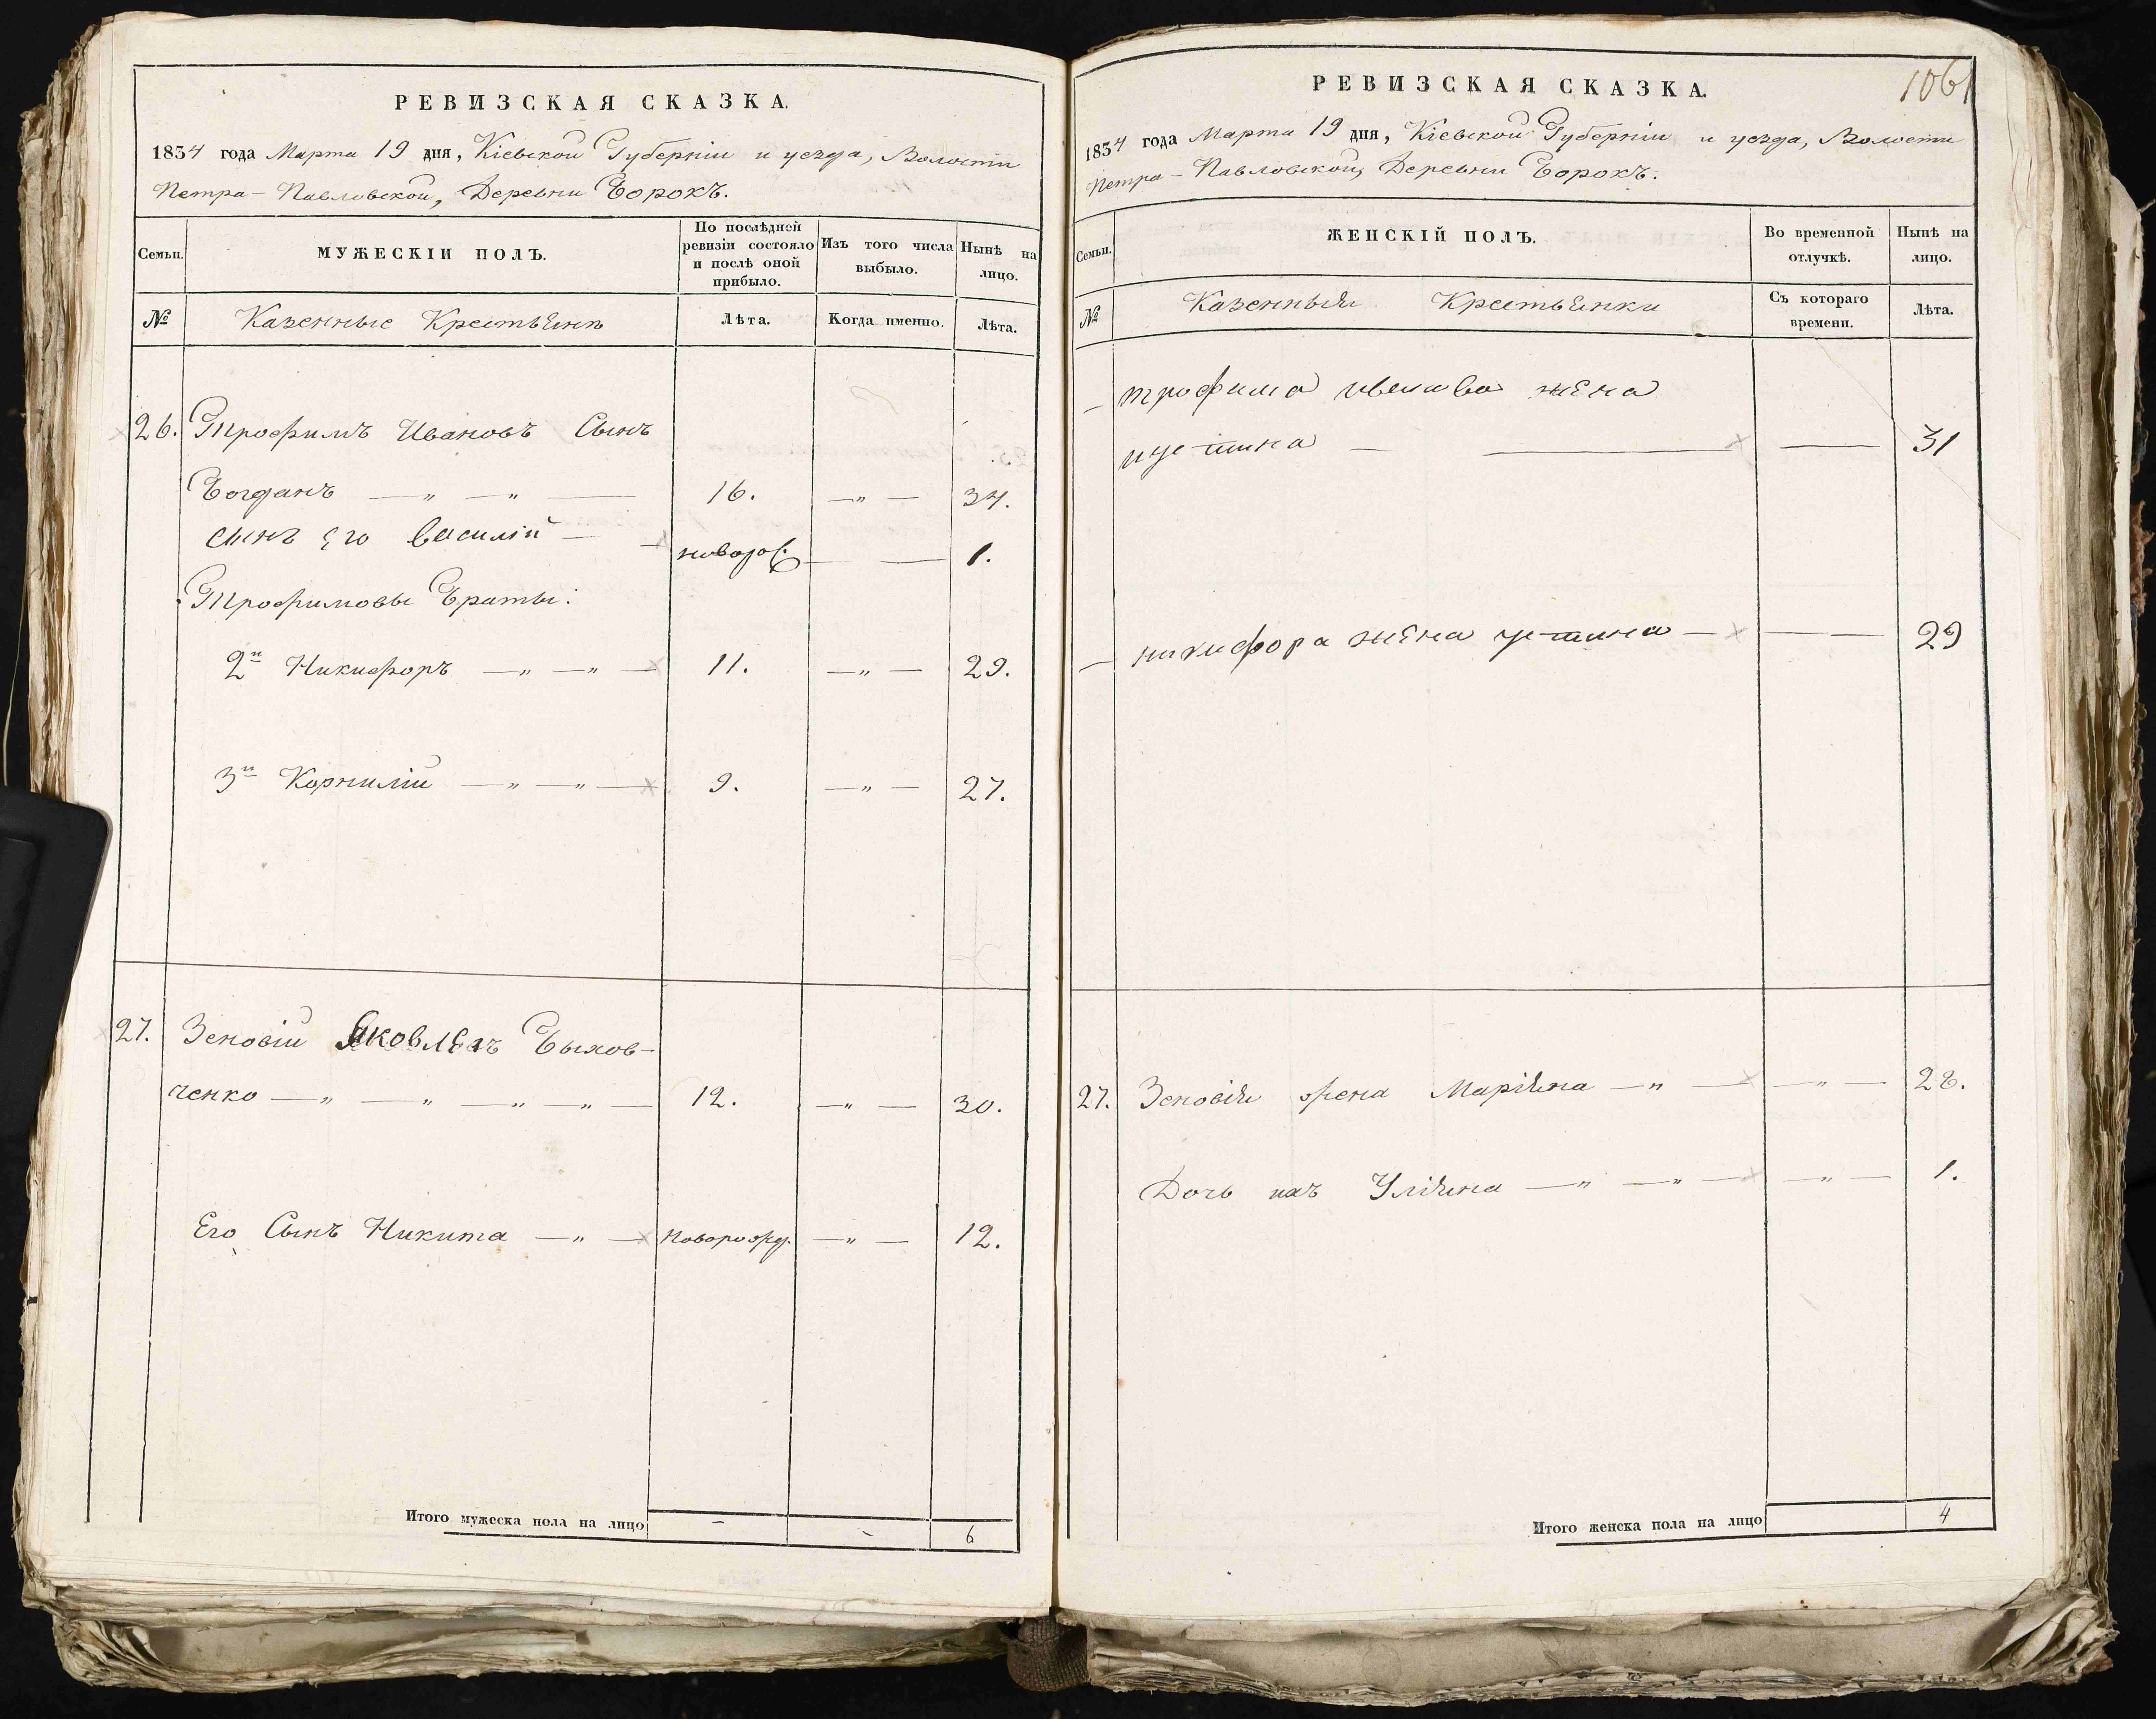 РЕВИЗСКАЯ СКАЗКА.
1834 года Марта 19 дня, Кіевской Губерніи и уезда, Волости
Петра-Павловской, Деревни Борокъ.
Семьи.
МУЖЕСКІЙ ПОЛЪ.
По послѣдней ревизіи состояло и послѣ оной прибыло.
Изъ того числа выбыло.
Нынѣ на лицо.
№
Казенные Крестьяне
Лѣта.
Когда именно.
Лѣта.
26. Трофимъ Ивановъ Сынъ
Богданъ — „ — „ — 16. — „ — 34.
сынъ его Василій — новорож — — 1.
Трофимовы Браты:
2й Никифоръ — „ — „ — 11. — „ — 29.
3й Корнилій — „ — „ — 9. — „ — 27.
27. Зеновій Яковлевъ Быхов-
ченко — „ — „ — „ — „ — 12. — „ — 30.
Его Сынъ Никита — „ — Новорожд. — „ — 12.
Итого мужеска пола на лицо
-
-
6
РЕВИЗСКАЯ СКАЗКА.
1061
1834 года Марта 19 дня, Кіевской Губерніи и уезда, Волости
Петра-Павловской, Деревни Борокъ.
Семьи.
ЖЕНСКІЙ ПОЛЪ.
Во временной отлучкѣ.
Нынѣ на лицо.
№
Казенныя Крестьянки
Съ котораго времени.
Лѣта.
— трофима ивелива жена
— — — 31
— никифора жена устина — — — 29
27. Зеновія жена Маріяна — „ — — „ — 28.
Дочь ихъ Уліяна — „ — „ — — „ — 1.
Итого женска пола на лицо
4